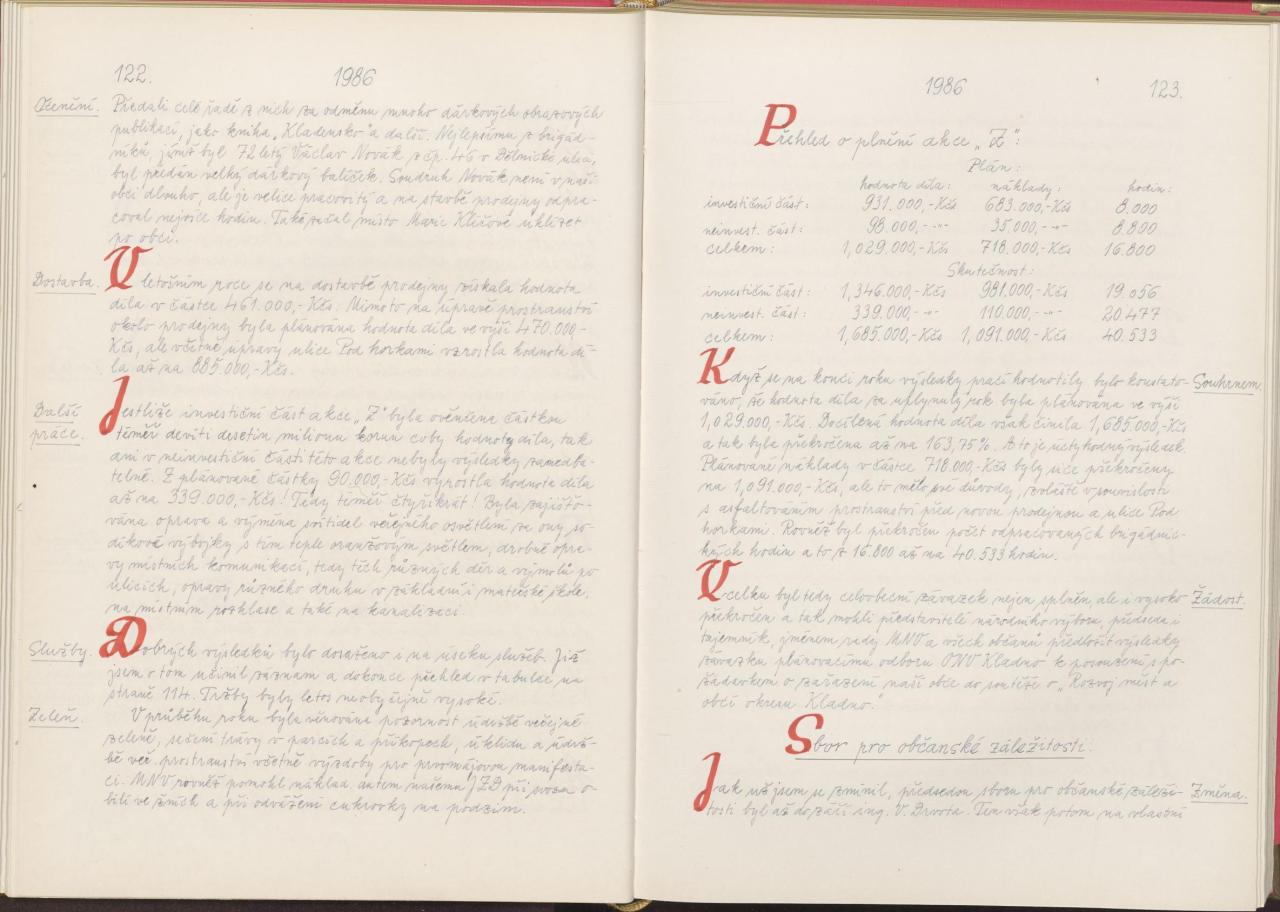 122. 1986
Ocenění. Předali celé řadě z nich za odměnu mnoho dárkových obrazových
publikací, jako kniha „Kladensko“ a další. Nejlepšímu z brigád-
níků, jímž byl 72 letý Václav Novák z čp. 46 v Dělnické ulici,
byl předán velký dárkový balíček. Soudruh Novák není v naší
obci dlouho, ale je velice pracovitý a na stavbě prodejny odpra-
coval nejvíce hodin. Také začal místo Marie Klírové uklízet
po obci.
Dostavba. V letošním roce se na dostavbě prodejny získala hodnota
díla v částce 461.000,- Kčs. Mimoto na úpravě prostranství
okolo prodejny byla plánována hodnota díla ve výši 470.000,-
Kčs, ale včetně úpravy ulice Pod horkami vzrostla hodnota dí-
la až na 885.000,- Kčs.
Další Jestliže investiční část akce „Z“ byla oceněna částkou
práce. téměř devíti desetin milionu korun coby hodnoty díla, tak
ani v neinvestiční části této akce nebyly výsledky zanedba-
telné. Z plánované částky 90.000,- Kčs vyrostla hodnota díla
až na 339.000,- Kčs! Tedy téměř čtyřikrát! Byla zajišto-
vána oprava a výměna svítidel veřejného osvětlení za ony so-
díkové výbojky s tím teple oranžovým světlem, drobné opra-
vy místních komunikací, tedy těch různých děr a výmolů po
ulicích, opravy různého druhu v základní i mateřské škole,
na místním rozhlase a také na kanalizaci.
Služby. Dobrých výsledků bylo dosaženo i na úseku služeb. Již
jsem o tom učinil záznam a dokonce přehled v tabulce na
straně 114. Tržby byly letos neobyčejně vysoké.
Zeleň. V průběhu roku byla věnována pozornost údržbě veřejné
zeleně, sečení trávy v parcích a příkopech, úklidu a údrž-
bě veř. prostranství včetně výzdoby pro prvomájovou manifesta-
ci. MNV rovněž pomohl náklad. autem našemu JZD při svozu o-
bilí ve žních a při odvážení cukrovky na podzim.
1986 123.
Přehled o plnění akce „Z“:
Plán:
hodnota díla: náklady: hodin:
investiční část: 931.000,- Kčs 683.000,- Kčs 8.000
neinvest. část: 98.000,- -"- 35.000,- -"- 8.800
celkem: 1,029.000,- Kčs 718.000,- Kčs 16.800
Skutečnost:
investiční část: 1,346.000,- Kčs 981.000,- Kčs 19.056
neinvest. část: 339.000,- -"- 110.000,- -"- 20.477
celkem: 1,685.000,- Kčs 1,091.000,- Kčs 40.533
Když se na konci roku výsledky prací hodnotily, bylo konstato- Souhrnem.
váno, že hodnota díla za uplynulý rok byla plánována ve výši
1,029.000,- Kčs. Docílená hodnota díla však činila 1,685.000,- Kčs
a tak byla překročena až na 163,75%. A to je úctyhodný výsledek.
Plánované náklady v částce 718.000,- Kčs byly sice překročeny
na 1,091.000,- Kčs, ale to mělo své důvody, zvláště v souvislosti
s asfaltováním prostranství před novou prodejnou a ulice Pod
horkami. Rovněž byl překročen počet odpracovaných brigádnic-
kých hodin a to z 16.800 až na 40.533 hodin.
V celku byl tedy celoobecní závazek nejen splněn, ale i vysoko Žádost.
překročen a tak mohli představitelé národního výboru, předseda i
tajemník, jménem rady MNV a všech občanů předložit výsledky
závazku plánovacímu odboru ONV Kladno k posouzení s po-
žadavkem o zařazení naší obce do soutěže o „Rozvoj měst a
obcí okresu Kladno.
Sbor pro občanské záležitosti.
Jak už jsem se zmínil, předsedou sboru pro občanské záleži- Změna.
tosti byl až do září ing. V. Drvota. Ten však potom na vlastní